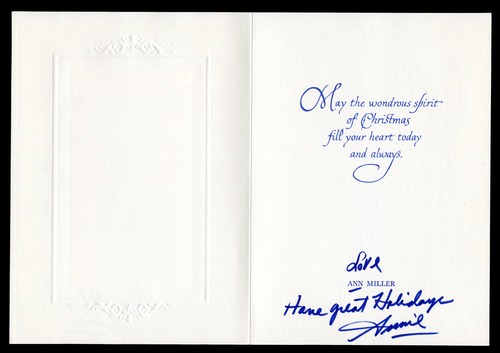 May the wondrous spirit
of Christmas
fill your heart today
and always.
Love
ANN MILLER
Have great Holidays
Annie